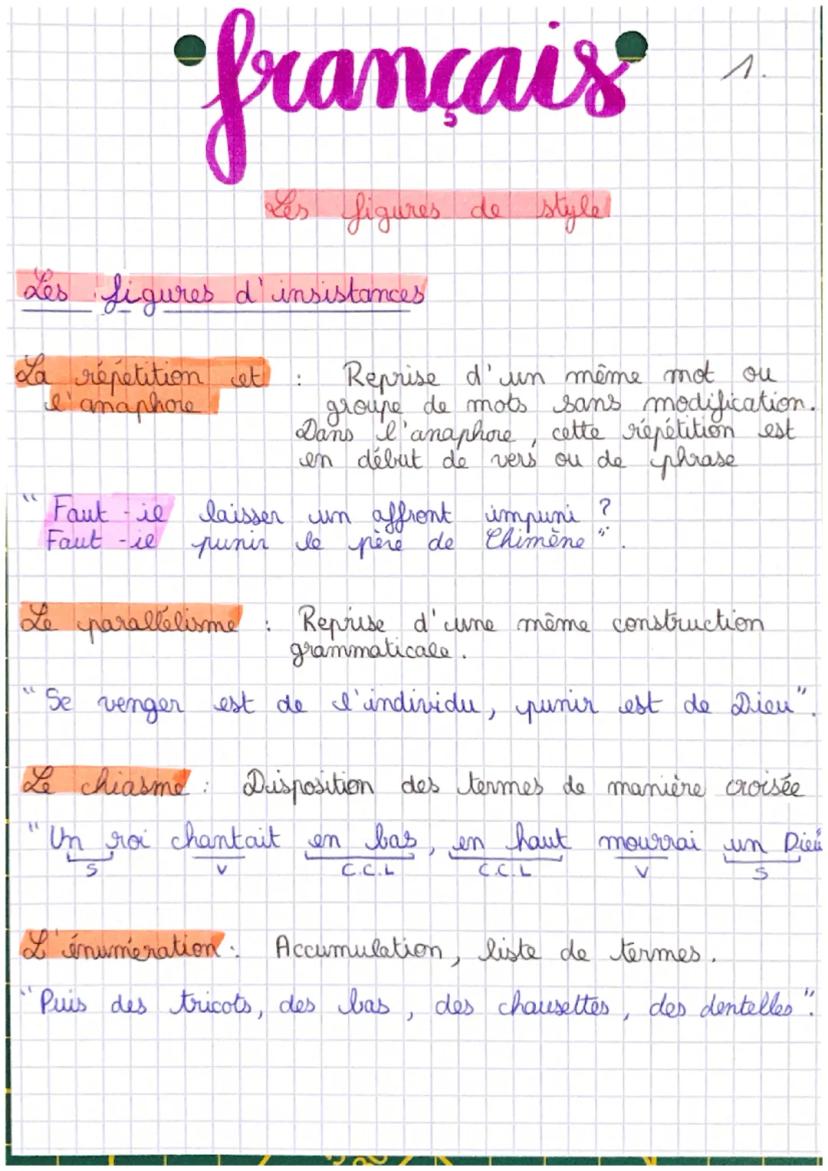 français
1.
Les figures de style
Les figures d'insistances
La répétition et : Reprise d'un même mot ou
l'anaphore groupe de mots sans modification.
Dans l'anaphore, cette répétition est
en début de vers ou de phrase
" Faut-il laisser un affront impuni ?
Faut-il punir le père de Chimène ".
Le parallélisme : Reprise d'une même construction
grammaticale.
" Se venger est de l'individu, punir est de Dieu ".
Le chiasme : Disposition des termes de manière croisée
" Un roi chantait en bas, en haut mourrai un Dieu
S V C.C.L C.C.L V S
L'énumération : Accumulation, liste de termes.
" Puis des tricots, des bas, des chausettes, des dentelles ".